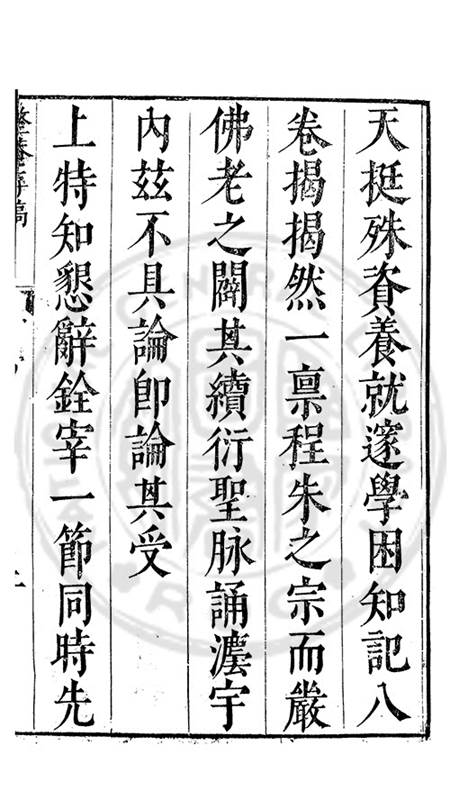 天挺殊資養就邃學困知記八
卷揭揭然一禀程朱之宗而嚴
佛老之闢其續衍聖脉誦瀍宇
內茲不具論卽論其受
上特知懇辭銓宰一節同時先
整菴存稿